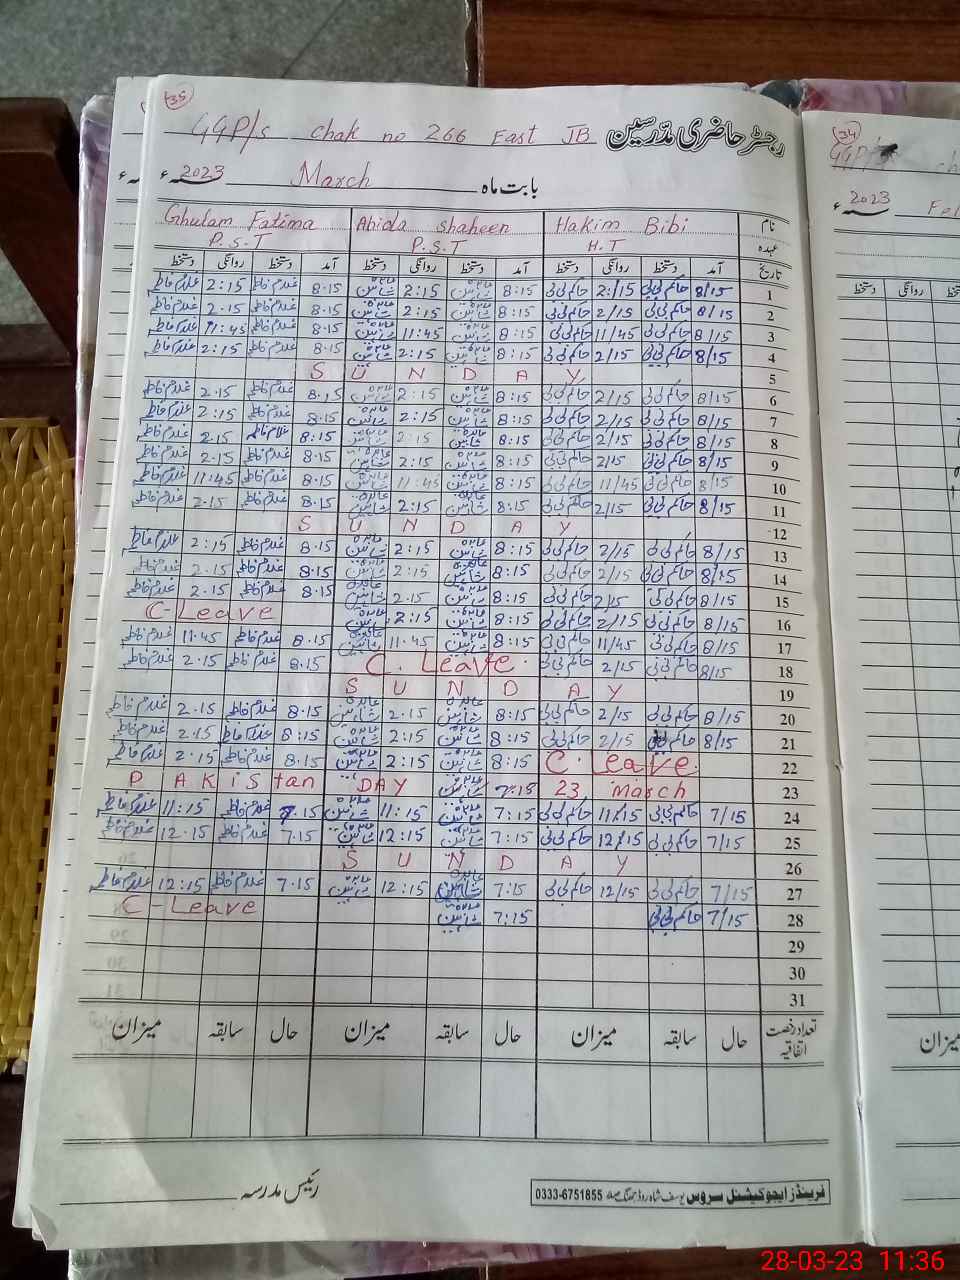 35
GGP/s chak no 266 East JB رجسٹر حاضری مدرسین
بابت ماہ March 2023ء
نام Hakim Bibi Abida shaheen Ghulam Fatima
عہدہ H.T P.S.T P.S.T
تاریخ آمد دستخط روانگی دستخط آمد دستخط روانگی دستخط آمد دستخط روانگی دستخط
1 8/15 حاکم بی بی 2/15 حاکم بی بی 8:15 عابدہ شاہین 2:15 عابدہ شاہین 8.15 غلام فاطمہ 2:15 غلام فاطمہ
2 8/15 حاکم بی بی 2/15 حاکم بی بی 8:15 عابدہ شاہین 2:15 عابدہ شاہین 8.15 غلام فاطمہ 2.15 غلام فاطمہ
3 8/15 حاکم بی بی 11/45 حاکم بی بی 8:15 عابدہ شاہین 11:45 عابدہ شاہین 8.15 غلام فاطمہ 11:45 غلام فاطمہ
4 8/15 حاکم بی بی 2/15 حاکم بی بی 8:15 عابدہ شاہین 2:15 عابدہ شاہین 8.15 غلام فاطمہ 2:15 غلام فاطمہ
5 SUNDAY
6 8/15 حاکم بی بی 2/15 حاکم بی بی 8:15 عابدہ شاہین 2:15 عابدہ شاہین 8.15 غلام فاطمہ 2.15 غلام فاطمہ
7 8/15 حاکم بی بی 2/15 حاکم بی بی 8:15 عابدہ شاہین 2:15 عابدہ شاہین 8.15 غلام فاطمہ 2:15 غلام فاطمہ
8 8/15 حاکم بی بی 2/15 حاکم بی بی 8:15 عابدہ شاہین 2:15 عابدہ شاہین 8:15 غلام فاطمہ 2.15 غلام فاطمہ
9 8/15 حاکم بی بی 2/15 حاکم بی بی 8:15 عابدہ شاہین 2:15 عابدہ شاہین 8.15 غلام فاطمہ 2.15 غلام فاطمہ
10 8/15 حاکم بی بی 11/45 حاکم بی بی 8:15 عابدہ شاہین 11:45 عابدہ شاہین 8.15 غلام فاطمہ 11:45 غلام فاطمہ
11 8/15 حاکم بی بی 2/15 حاکم بی بی 8:15 عابدہ شاہین 2:15 عابدہ شاہین 8.15 غلام فاطمہ 2.15 غلام فاطمہ
12 SUNDAY
13 8/15 حاکم بی بی 2/15 حاکم بی بی 8:15 عابدہ شاہین 2:15 عابدہ شاہین 8.15 غلام فاطمہ 2:15 غلام فاطمہ
14 8/15 حاکم بی بی 2/15 حاکم بی بی 8:15 عابدہ شاہین 2:15 عابدہ شاہین 8.15 غلام فاطمہ 2.15 غلام فاطمہ
15 8/15 حاکم بی بی 2/15 حاکم بی بی 8:15 عابدہ شاہین 2.15 عابدہ شاہین 8.15 غلام فاطمہ 2.15 غلام فاطمہ
16 8/15 حاکم بی بی 2/15 حاکم بی بی 8:15 عابدہ شاہین 2:15 عابدہ شاہین C-Leave
17 8/15 حاکم بی بی 11/45 حاکم بی بی 8:15 عابدہ شاہین 11.45 عابدہ شاہین 8.15 غلام فاطمہ 11.45 غلام فاطمہ
18 8/15 حاکم بی بی 2/15 حاکم بی بی C. Leave 8.15 غلام فاطمہ 2.15 غلام فاطمہ
19 SUNDAY
20 8/15 حاکم بی بی 2/15 حاکم بی بی 8:15 عابدہ شاہین 2.15 عابدہ شاہین 8.15 غلام فاطمہ 2.15 غلام فاطمہ
21 8/15 حاکم بی بی 2/15 حاکم بی بی 8:15 عابدہ شاہین 2:15 عابدہ شاہین 8:15 غلام فاطمہ 2.15 غلام فاطمہ
22 C. Leave 8:15 عابدہ شاہین 2:15 عابدہ شاہین 8.15 غلام فاطمہ 2.15 غلام فاطمہ
23 PAKiStan DAY عابدہ شاہین 7:15 23 March
24 7/15 حاکم بی بی 11/15 حاکم بی بی 7:15 عابدہ شاہین 11:15 عابدہ شاہین 7.15 غلام فاطمہ 11:15 غلام فاطمہ
25 7/15 حاکم بی بی 12/15 حاکم بی بی 7:15 عابدہ شاہین 12:15 عابدہ شاہین 7.15 غلام فاطمہ 12.15 غلام فاطمہ
26 SUNDAY
27 7/15 حاکم بی بی 12/15 حاکم بی بی 7:15 عابدہ شاہین 12:15 عابدہ شاہین 7.15 غلام فاطمہ 12:15 غلام فاطمہ
28 7/15 حاکم بی بی 7:15 عابدہ شاہین C-Leave
29
30
31
تعداد رخصت اتفاقیہ حال سابقہ میزان حال سابقہ میزان حال سابقہ میزان
رئیس مدرسہ
فرینڈز ایجوکیشنل سروس یوسف شاہ روڈ جھنگ صدر 0333-6751855
34
GGP/s ch
2023ء Fe
دستخط روانگی
میزان
28-03-23 11:36